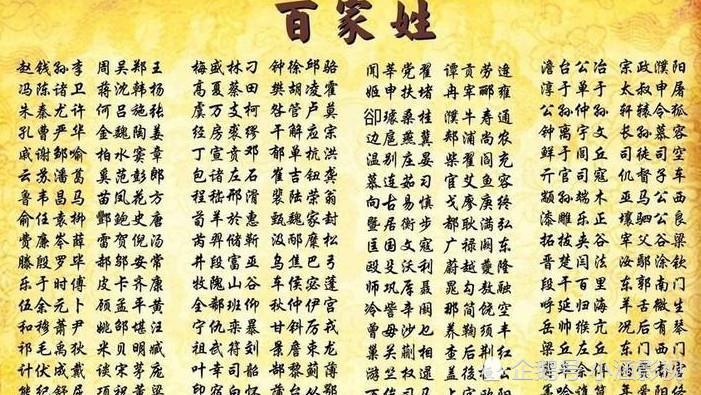 百家姓
赵钱孙李 周吴郑王 梅盛林刁 钟徐邱骆 闻莘党翟 谭贡劳逄 澹台公冶 宗政濮阳
冯陈诸卫 蒋沈韩杨 高夏蔡田 樊胡凌霍 姬申扶堵 冉宰郦雍 淳于单于 太叔申屠
朱秦尤许 何吕施张 虞万支柯 昝管卢莫 郤璩桑桂 濮牛寿通 公孙仲孙 轩辕令狐
孔曹严华 金魏陶姜 经房裘缪 干解应宗 边扈燕冀 郏浦尚农 钟离宇文 长孙慕容
戚谢邹喻 柏水窦章 丁宣贲邓 郁单杭洪 温别庄晏 柴瞿阎充 鲜于闾丘 司徒司空
云苏潘葛 奚范彭郎 包诸左石 崔吉钮龚 慕连茹习 宦艾鱼容 亓官司寇 仉督子车
鲁韦昌马 苗凤花方 程嵇邢滑 裴陆荣翁 向古易慎 戈廖庾终 颛孙端木 巫马公西
俞任袁柳 酆鲍史唐 荀羊於惠 甄魏家封 暨居衡步 都耿满弘 漆雕乐正 壤驷公良
费廉岑薛 雷贺倪汤 芮羿储靳 汲邴糜松 匡国文寇 广禄阙东 拓拔夹谷 宰父谷梁
滕殷罗毕 郝邬安常 井段富巫 乌焦巴弓 殴殳沃利 蔚越夔隆 晋楚闫法 汝鄢涂钦
乐于时傅 皮卞齐康 牧隗山谷 车侯宓蓬 师巩厍聂 晁勾敖融 段干百里 东郭南门
伍余元卜 顾孟平黄 全郗班仰 秋仲伊宫 冷訾辛阚 那简饶空 呼延归海 羊舌微生
和穆萧尹 姚邵堪汪 宁仇栾暴 甘斜厉戎 曾毋沙乜 养鞠须丰 岳帅缑亢 况后有琴
祁毛禹狄 米贝明臧 祖武符刘 景詹束龙 巢关蒯相 查后荆红 梁丘左丘 东门西门
计伏成戴 谈宋茅庞 叶幸司韶 游竺权
熊纪舒屈 项祝董梁 印宿白怀
企鹅号 小涵影视